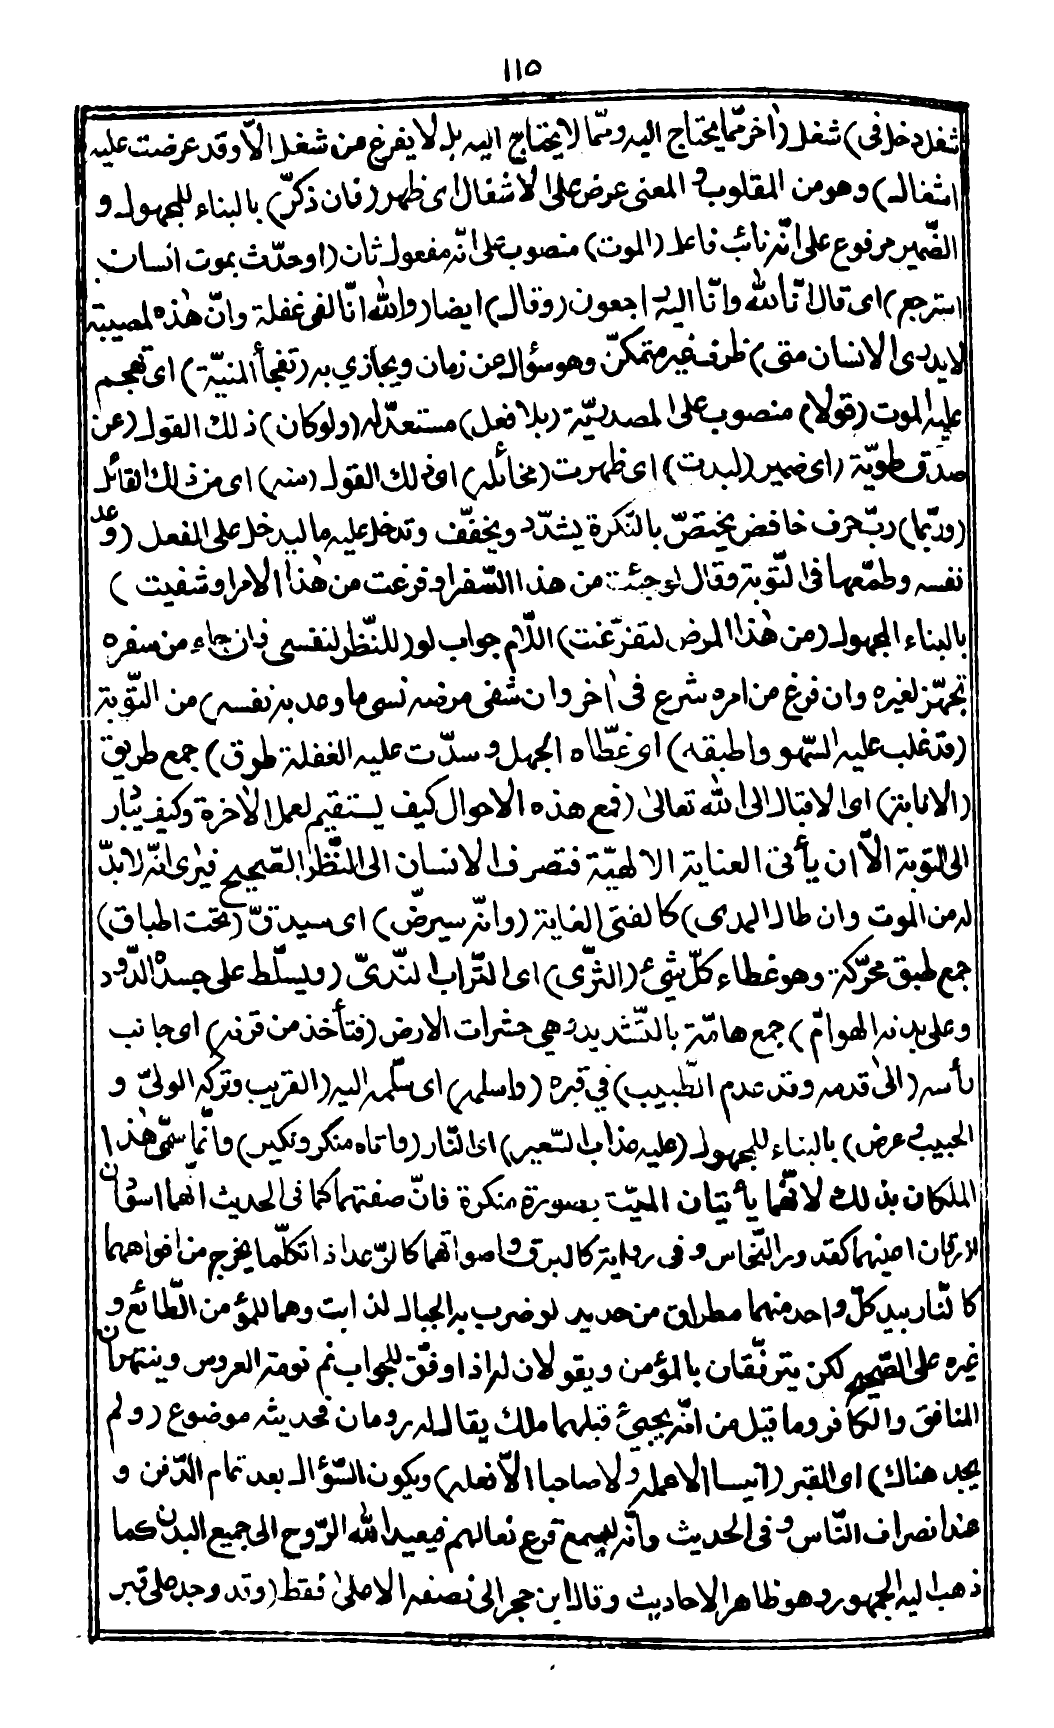 ١١٥
شغل دخل فى) شغل (اٰخر ممّا يحتاج اليه وممّا لا يحتاج اليه بل لا يفرغ من شغل الاّ وقد عرضت عليه
اشغال) وهو من المقلوب والمعنى عرض على الاشغال اى ظهر (فان ذكّر) بالبناء للمجهول و
الضّمير مرفوع على انّه نائب فاعل (الموت) منصوب على انّه مفعول ثان (او حدّث بموت انسان
استرجع) اى قال انّا لله وانّا اليه راجعون (وقال) ايضا (والله انّا لفى غفلة وانّ هذه لمصيبة
لا يدرى الانسان متى) ظرف غير متمكّن وهو سؤال عن زمان ويجازي به (تفجأ المنيّة) اى تهجم
عليه الموت (قولا) منصوب على المصدريّة (بلا فعل) مستعدّ له (ولو كان) ذلك القول (عن
صدق طويّة) اى ضمير (لبدت) اى ظهرت (مخائله) اى ذلك القول (منه) اى من ذلك القائل
(وربّما) ربّ حرف خافض يختصّ بالنّكرة يشدّد ويخفّف وتدخل عليه ما ليدخل على الفعل (وعد
نفسه وطمّعها فى التّوبة وقال لو جئت من هذا السّفر او فرغت من هٰذا الامر او شفيت )
بالبناء المجهول (من هٰذا المرض لتفرّغت) اللّام جواب لو (للنّظر لنفسى فان جاء من سفره
تجهّز لغيره وان فرغ من امره شرع فى اٰخر وان شفى مرضه نسى ما وعد به نفسه) من التّوبة
(قد غلب عليه السّهو واطبقه) اى غطّاه الجهل وسدّت عليه الغفلة طرق) جمع طريق
(الانابة) اى الاقبال الى الله تعالىٰ (فمع هذه الاحوال كيف يستقيم لعمل الاٰخرة وكيف يبادر
الى التوبة الاّ ان يأتى العناية الالهيّة فتصرف الانسان الى النّظر الصّحيح فيرى انّه لا بدّ
له من الموت وان طال المدى) كالفتى الغاية (وانّه سيرضّ) اى سيدقّ (تحت اطباق)
جمع طبق محرّكة وهو غطاء كلّ شئ (الثّرى) اى التّراب النّدىّ (ويسلّط على جسده الدّود
وعلى بدنه الهوامّ) جمع هامّة بالتّشديد وهي حشرات الارض (فتأخذ من قرنه) اى جانب
رأسه (الىٰ قدمه وقد عدم الطّبيب) في قبره (واسلمه) اى سلّمه اليه (القريب وتركه الولىّ و
الحبيب وعرض) بالبناء للمجهول (عليه عذاب السّعير) اى النّار (واتاه منكر ونكير) وانّما سمّى هٰذا
الملكان بذلك لانّهما يأتيان الميّت بصورة منكرة فانّ صفتهما كما فى الحديث انّهما اسودان
ازرقان اعينهما كقدور النّحاس وفى رواية كالبرق واصواتهما كالرّعد اذا تكلّما يخرج من افواههما
كالنّار بيد كلّ واحد منهما مطراق من حديد لو ضرب به الجبال لذابت وهما للمؤمن الطّائع و
غيره على الصّحيح لكن يترفّقان بالمؤمن ويقولان له اذا وفّق للجواب نم نومة العروس وينتهران
المنافق والكافر وما قيل من انّه يجيئ قبلهما ملك يقال له رومان فحديثه موضوع (ولم
يجد هناك) اى القبر (انيسا الاّ عمله ولا صاحبا الاّ فعله) ويكون السّؤال بعد تمام الدّفن و
عند انصراف النّاس وفى الحديث وانّه ليسمع قرع نعالهم فيعيد الله الرّوح الى جميع البدن كما
ذهب اليه الجمهور وهو ظاهر الاحاديث وقال ابن حجر الى نصفه الاعلىٰ فقط (وقد وجد على قبر